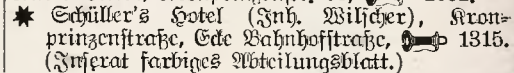 ✷ Schüller's Hotel (Inh. Wilscher), Kron=
prinzenstraße, Ecke Bahnhofstraße, 1315.
(Inserat farbiges Abteilungsblatt.)